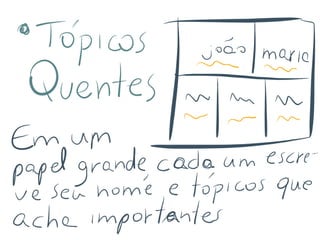 • Tópicos
Quentes
João maria
Em um
papel grande cada um escre-
ve seu nome e tópicos que
acha importantes